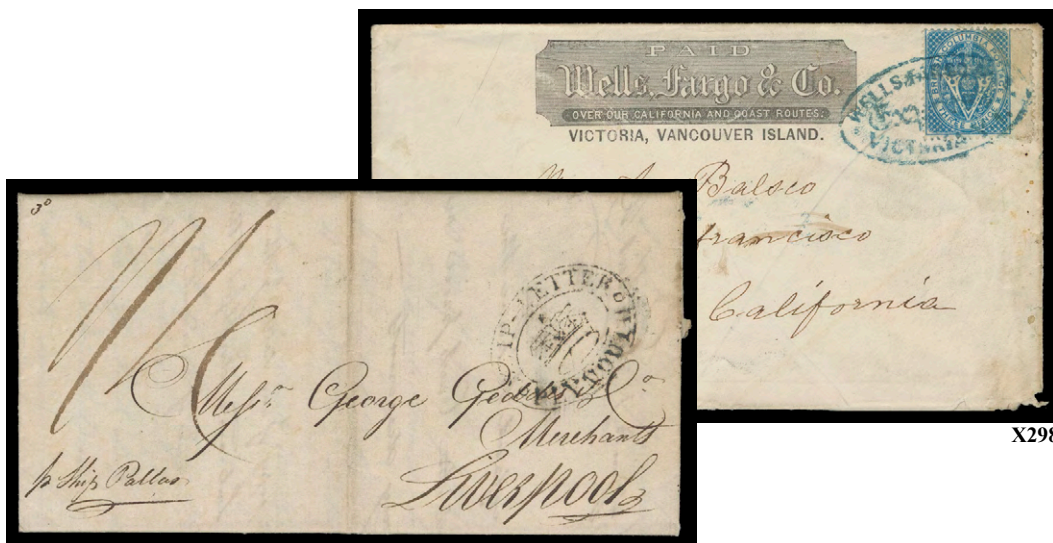 PAID
Wells, Fargo & Co.
OVER OUR CALIFORNIA AND COAST ROUTES.
VICTORIA, VANCOUVER ISLAND.
WELLS, FARGO
VICTORIA
BRITISH COLUMBIA POSTAGE
Balsco
Francisco
California
X298
SHIP-LETTER
PLYMOUTH
Messrs George Geddes & Co
Merchants
Liverpool
p Ship Pallas